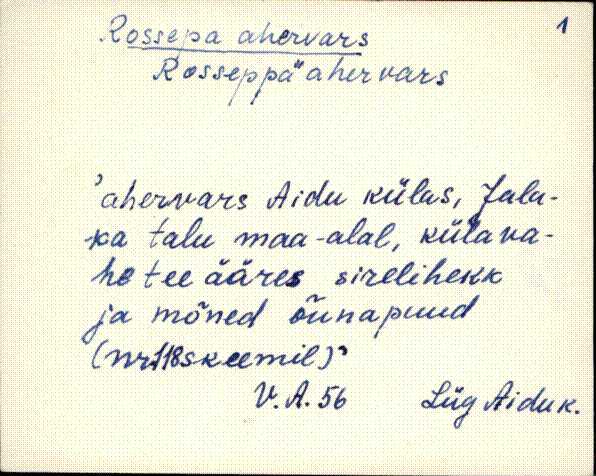 1
Rossepa ahervars
Rosseppä ahervars
'ahervars Aidu külas, Jala-
ka talu maa-alal, külava-
he tee ääres sirelihekk
ja mõned õunapuud
(nr.118 skeemil)'
V. A. 56 Lüg Aidu k.